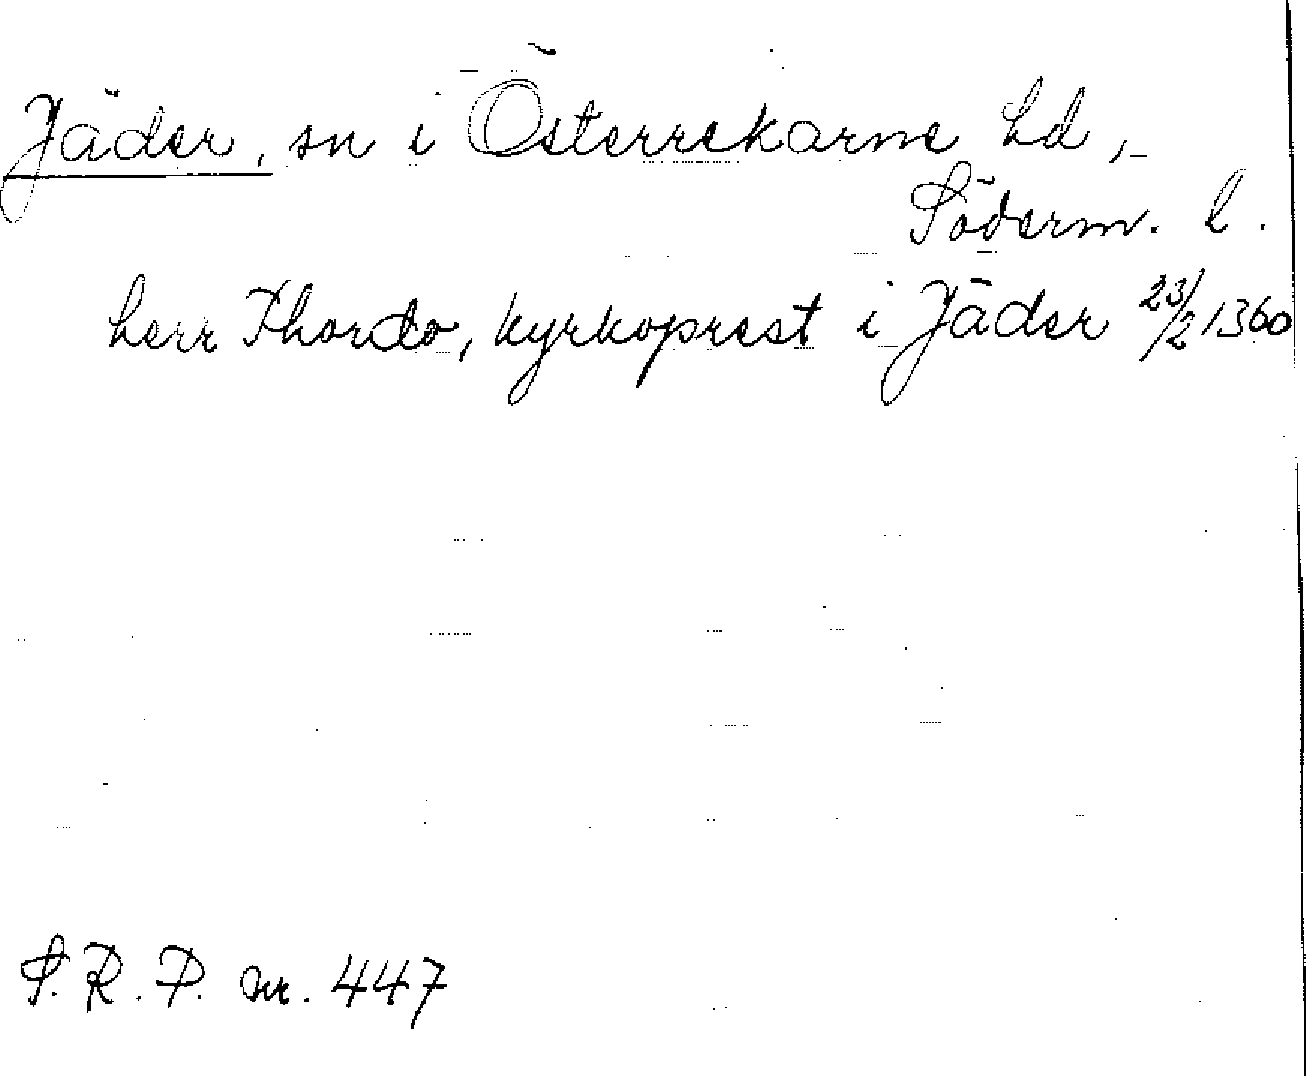 Jäder, sn i Österrekarne hd,
Söderm. l.
herr Thordo, kyrkoprest i Jäder 23/2 1360
S. R. P. nr. 447